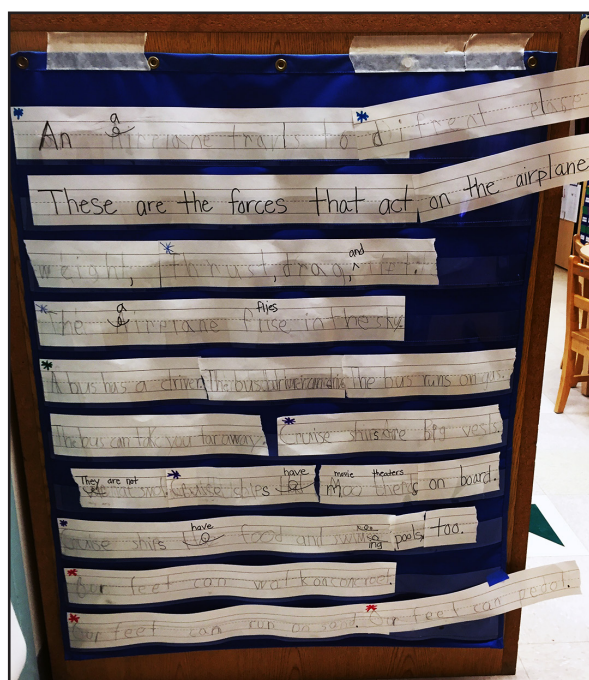 An a Airelane travls to difrent place
These are the forces that act on the airplane
weight, thrust, drag, and lift.
The a Airelane flies frise in the sky.
A bus has a driver. the bus driver can drive the bus runs on gas.
the bus can take you far away. Cruise ships are big vests.
They are not small. Cruise ships have movie theaters on board.
Cruise ships have food and swim ing pools too.
Our feet can walk on concreet.
Our feet can run on sand. Our feet can pedal.